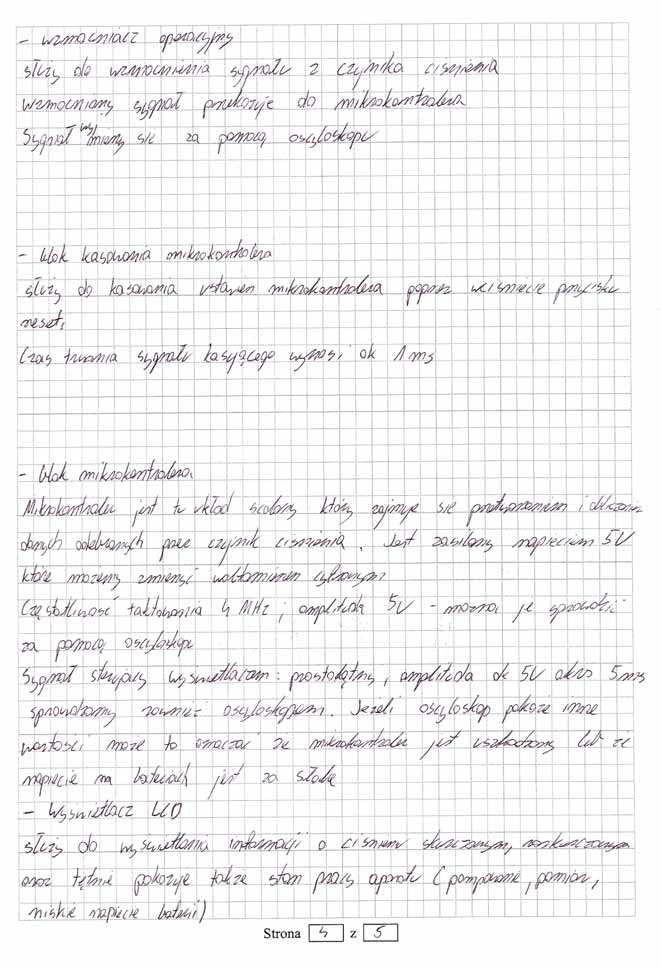 - wzmocniacz operacyjny
służy do wzmocnienia sygnału z czujnika ciśnienia
wzmocniony sygnał przekazuje do mikrokontrolera
Sygnał wyj mierzy się za pomocą oscyloskopu
- blok kasowania mikrokontrolera
służy do kasowania ustawien mikrokontrolera poprzez wcisniecie przycisku
reset,
Czas trwania sygnału kasującego wynosi ok 1 ms
- blok mikrokontrolera
Mikrokontroler jest to układ scalony który zajmuje się przetwarzaniem i
danych odebranych przez czujnik ciśnienia. Jest zasilany napięciem 5V
które możemy zmierzyć woltomierzem cyfrowym
Częstotliwość taktowania 4 MHz ; amplituda 5V - można je sprawdzić
za pomocą oscyloskopu
Sygnał sterujący wyświetlaczem : prostokątny, amplituda ok 5V okres 5ms
sprawdzamy rownież oscyloskopem. Jeżeli oscyloskop pokaże inne
wartości może to oznaczać ze mikrokontroler jest uszkodzony lub ze
napięcie na bateriach jest za słabe
- Wyświetlacz LCD
służy do wyświetlania informacji o ciśnieniu skurczowym, rozkurczowym
oraz tętnie pokazuje także stan pracy aparatu (pompowanie, pomiar,
niskie napięcie baterii)
Strona 4 z 5